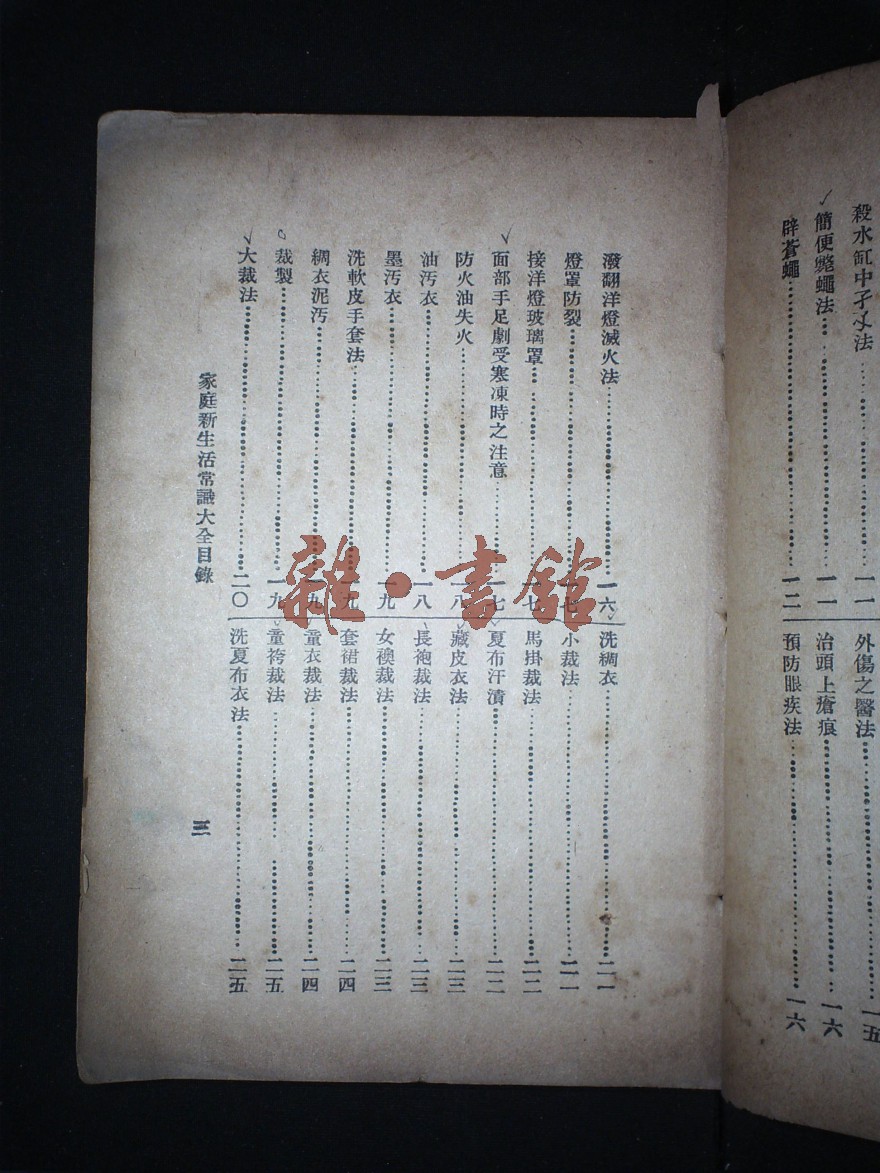 殺水缸中孑孓法……一一
簡便斃蠅法……一一
辟蒼蠅……一二
外傷之醫法……一五
治頭上瘡痕……一六
預防眼疾法……一六
潑翻洋燈滅火法……一六
燈罩防裂……一七
接洋燈玻璃罩……一七
面部手足劇受寒凍時之注意……一七
防火油失火……一八
油汚衣……一八
墨汚衣……一九
洗軟皮手套法……一九
綢衣泥汚……一九
裁製……一九
大裁法……二〇
洗綢衣……二一
小裁法……二一
馬掛裁法……二二
夏布汗漬……二二
藏皮衣法……二三
長袍裁法……二三
女襖裁法……二三
套裙裁法……二四
童衣裁法……二四
童袴裁法……二五
洗夏布衣法……二五
家庭新生活常識大全目錄
三
雜·書館